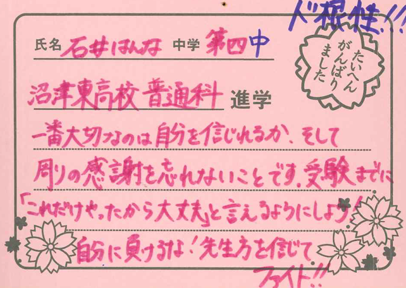 ド根性!!
氏名 石井はんな 中学 第四中
たいへん
がんばり
ました
沼津東高校 普通科 進学
一番大切なのは自分を信じれるか、そして
周りの感謝を忘れないことです。受験までに
「これだけやったから大丈夫」と言えるようにしよう!
自分に負けるな!先生方を信じて
ファイト!!